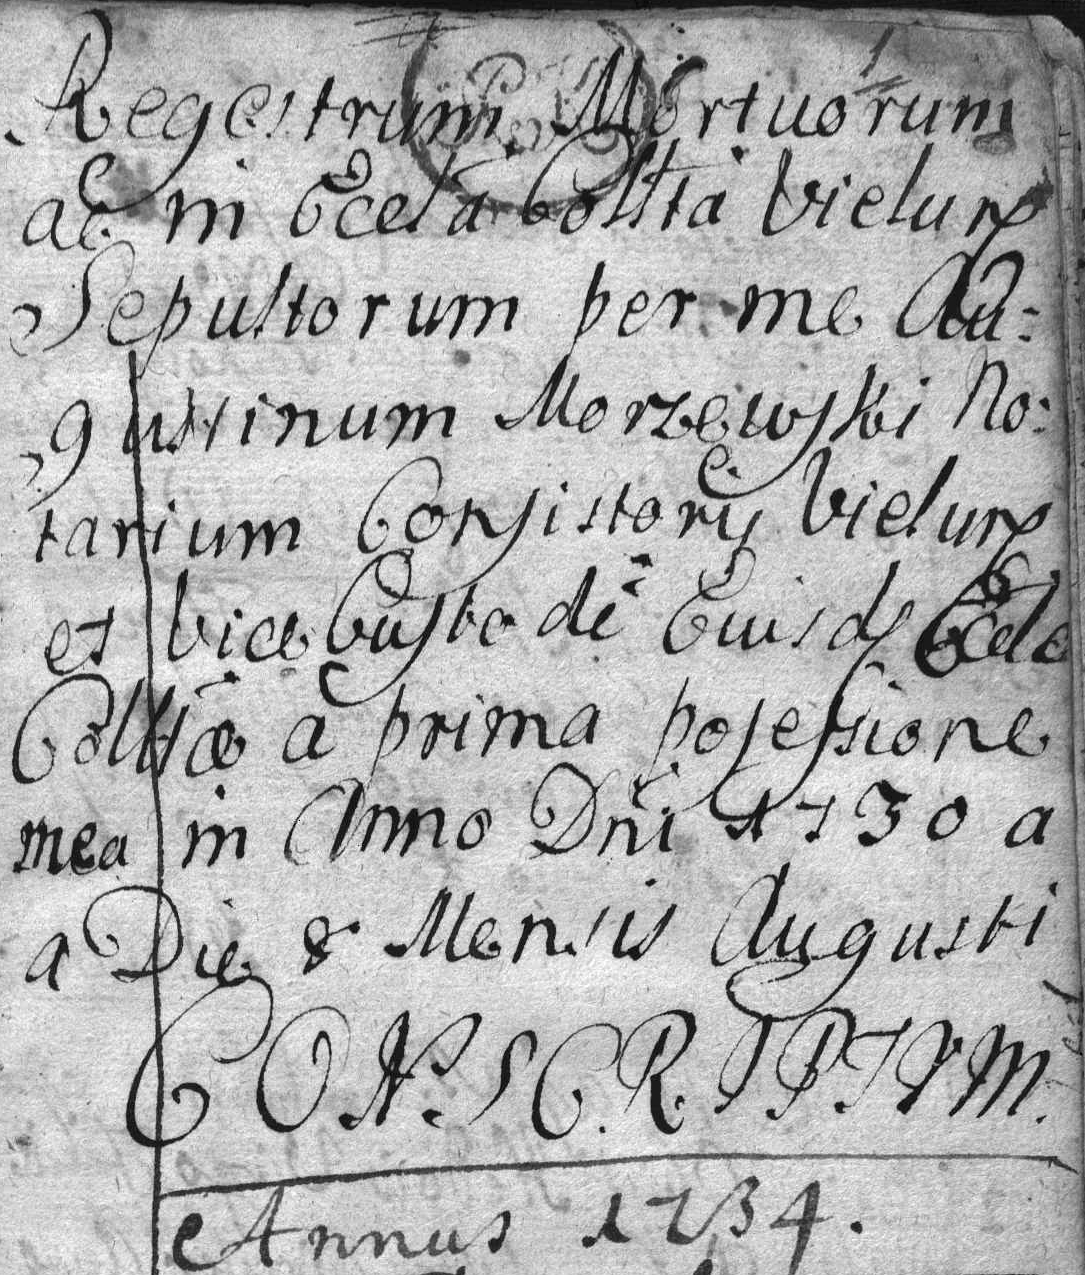 Regestrum Mortuorum
ac in Eccl̃a Collt̃a Vieluñ
Sepultorum per me Au:
gustinum Morzewski No:
tarium Consistorij Vieluñ
et Vice Custodẽ Eiusd Eccle
Collt̃æ a prima possessione
mea in Anno Dñi 1730 a
a Die 8 Mensis Augusti
CONSCRIPTVM.
Annus 1734.